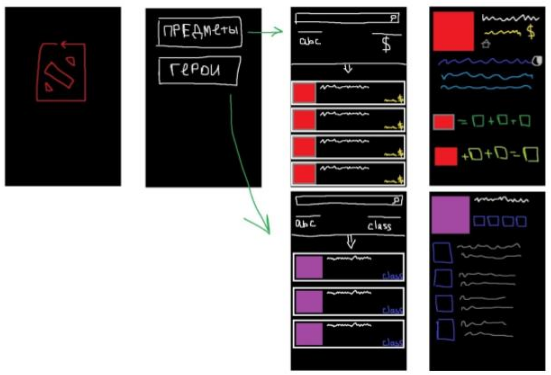 ПРЕДМЕТЫ
ГЕРОИ
abc $
$
$
$
$
abc class
class
class
class
$
= + +
+ + =